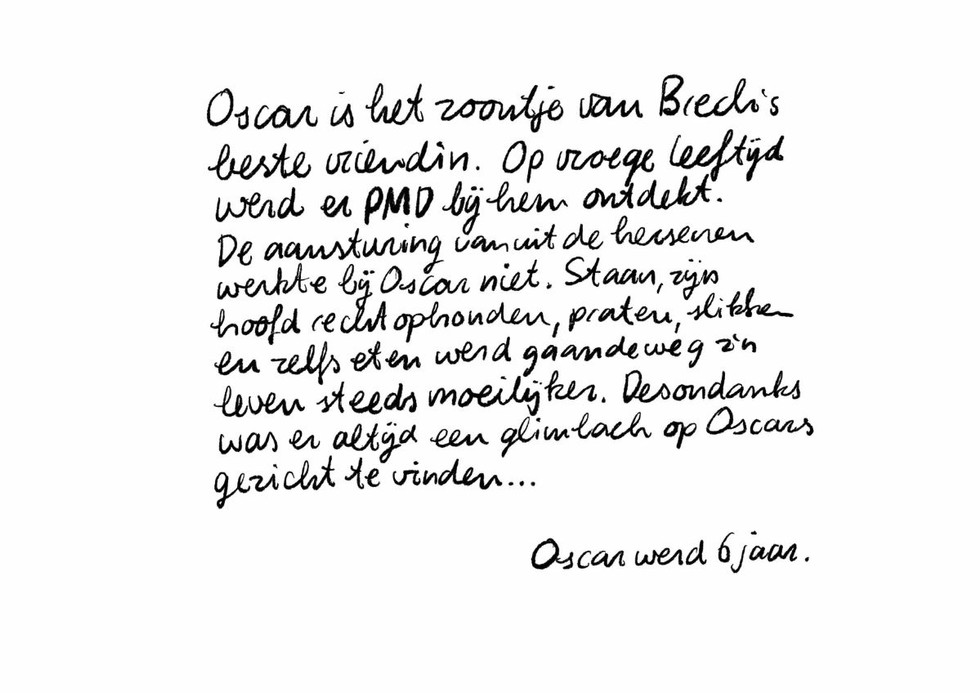 Oscar is het zoontje van Brecht's
beste vriendin. Op vroege leeftijd
werd er PMD bij hem ontdekt.
De aansturing vanuit de hersenen
werkte bij Oscar niet. Staan, zijn
hoofd recht ophouden, praten, slikken
en zelfs eten werd gaandeweg z'n
leven steeds moeilijker. Desondanks
was er altijd een glimlach op Oscars
gezicht te vinden...
Oscar werd 6 jaar.